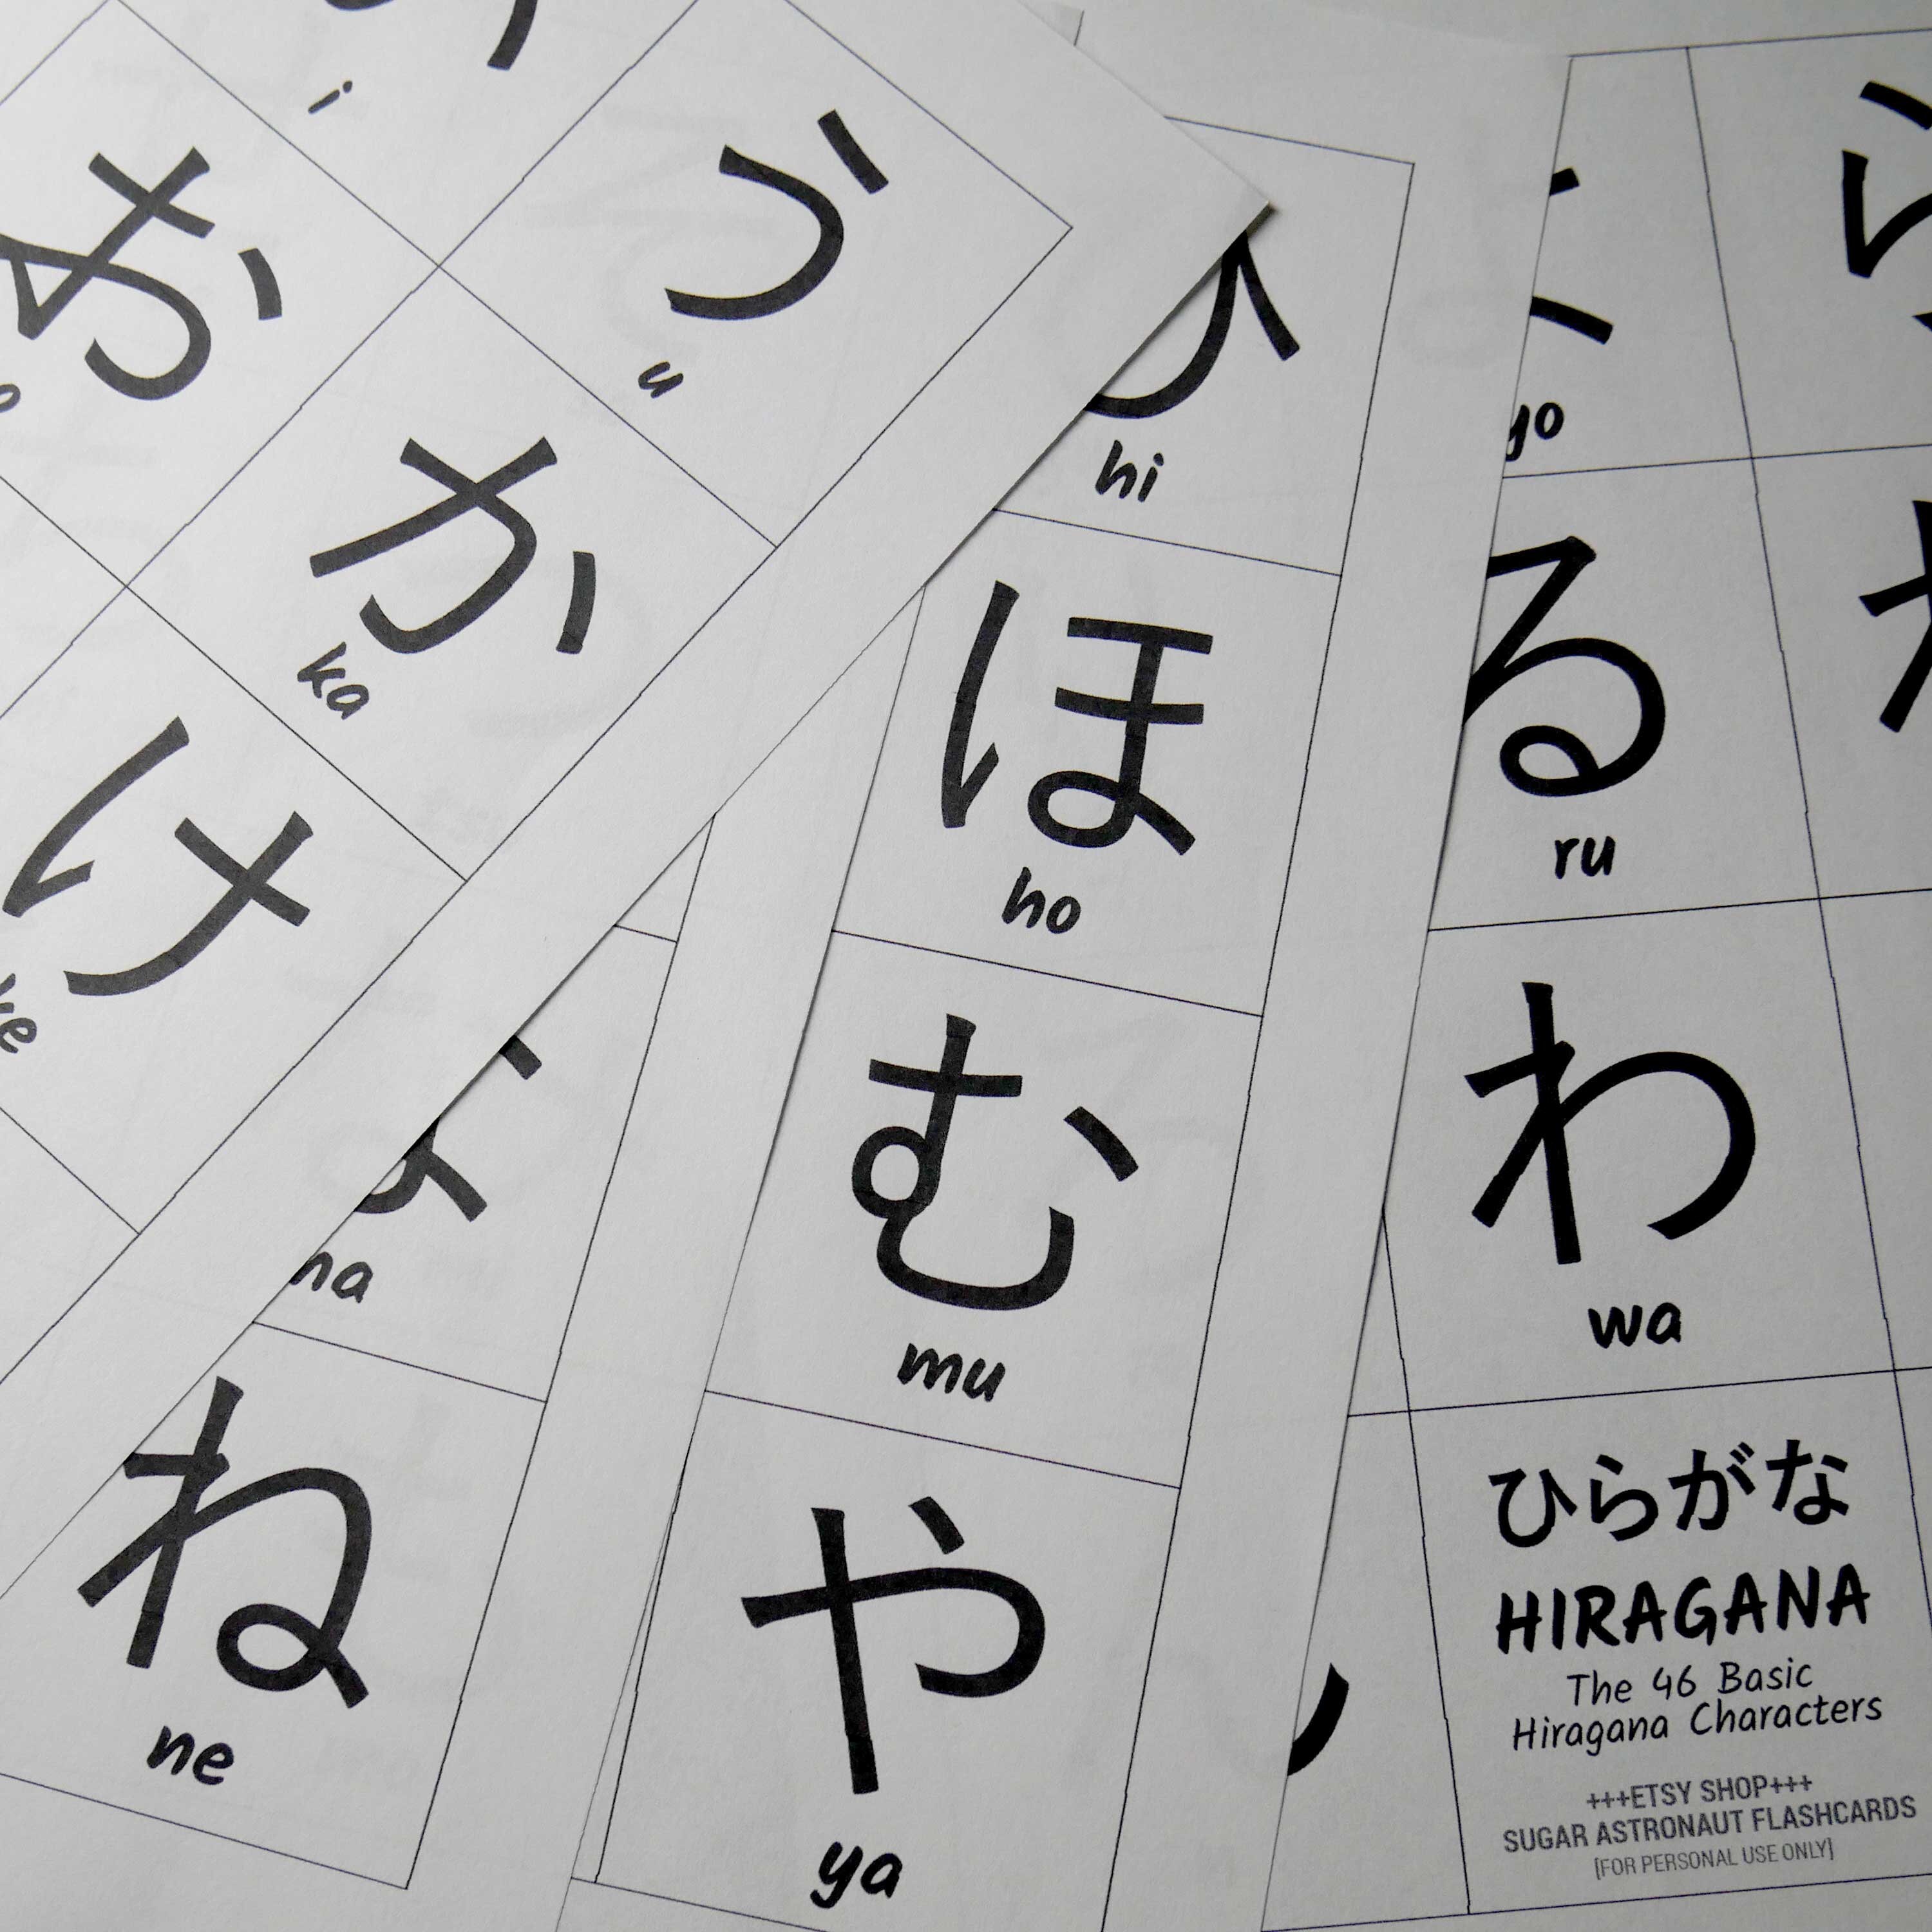 i
う
u
お
か
ka
け
ひ
hi
ほ
ho
む
mu
や
ya
na
ね
ne
yo
る
ru
わ
wa
ひらがな
HIRAGANA
The 46 Basic
Hiragana Characters
+++ETSY SHOP+++
SUGAR ASTRONAUT FLASHCARDS
[FOR PERSONAL USE ONLY]